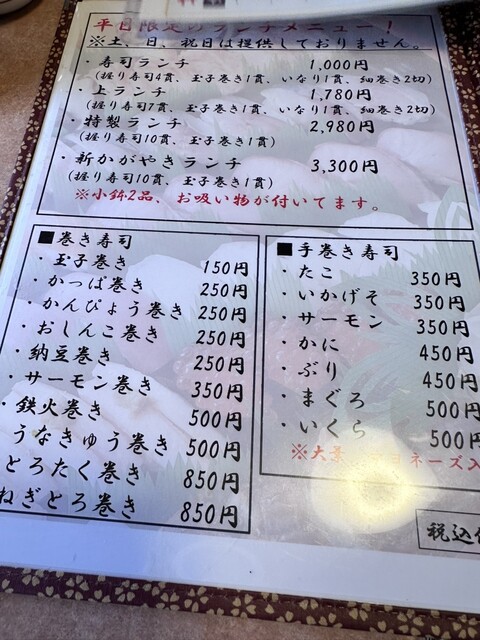 平日限定のランチメニュー！
※土、日、祝日は提供しておりません。
・寿司ランチ 1,000円
(握り寿司4貫、玉子巻き1貫、いなり1貫、細巻き2切)
・上ランチ 1,780円
(握り寿司7貫、玉子巻き1貫、いなり1貫、細巻き2切)
・特製ランチ 2,980円
(握り寿司10貫、玉子巻き1貫)
・新かがやきランチ 3,300円
(握り寿司10貫、玉子巻き1貫)
※小鉢2品、お吸い物が付いてます。
■巻き寿司
・玉子巻き 150円
・かっぱ巻き 250円
・かんぴょう巻き 250円
・おしんこ巻き 250円
・納豆巻き 250円
・サーモン巻き 350円
・鉄火巻き 500円
うなきゅう巻き 500円
とろたく巻き 850円
ねぎとろ巻き 850円
■手巻き寿司
・たこ 350円
・いかげそ 350円
・サーモン 350円
・かに 450円
・ぶり 450円
・まぐろ 500円
・いくら 500円
※大葉 ヨネーズ入
税込